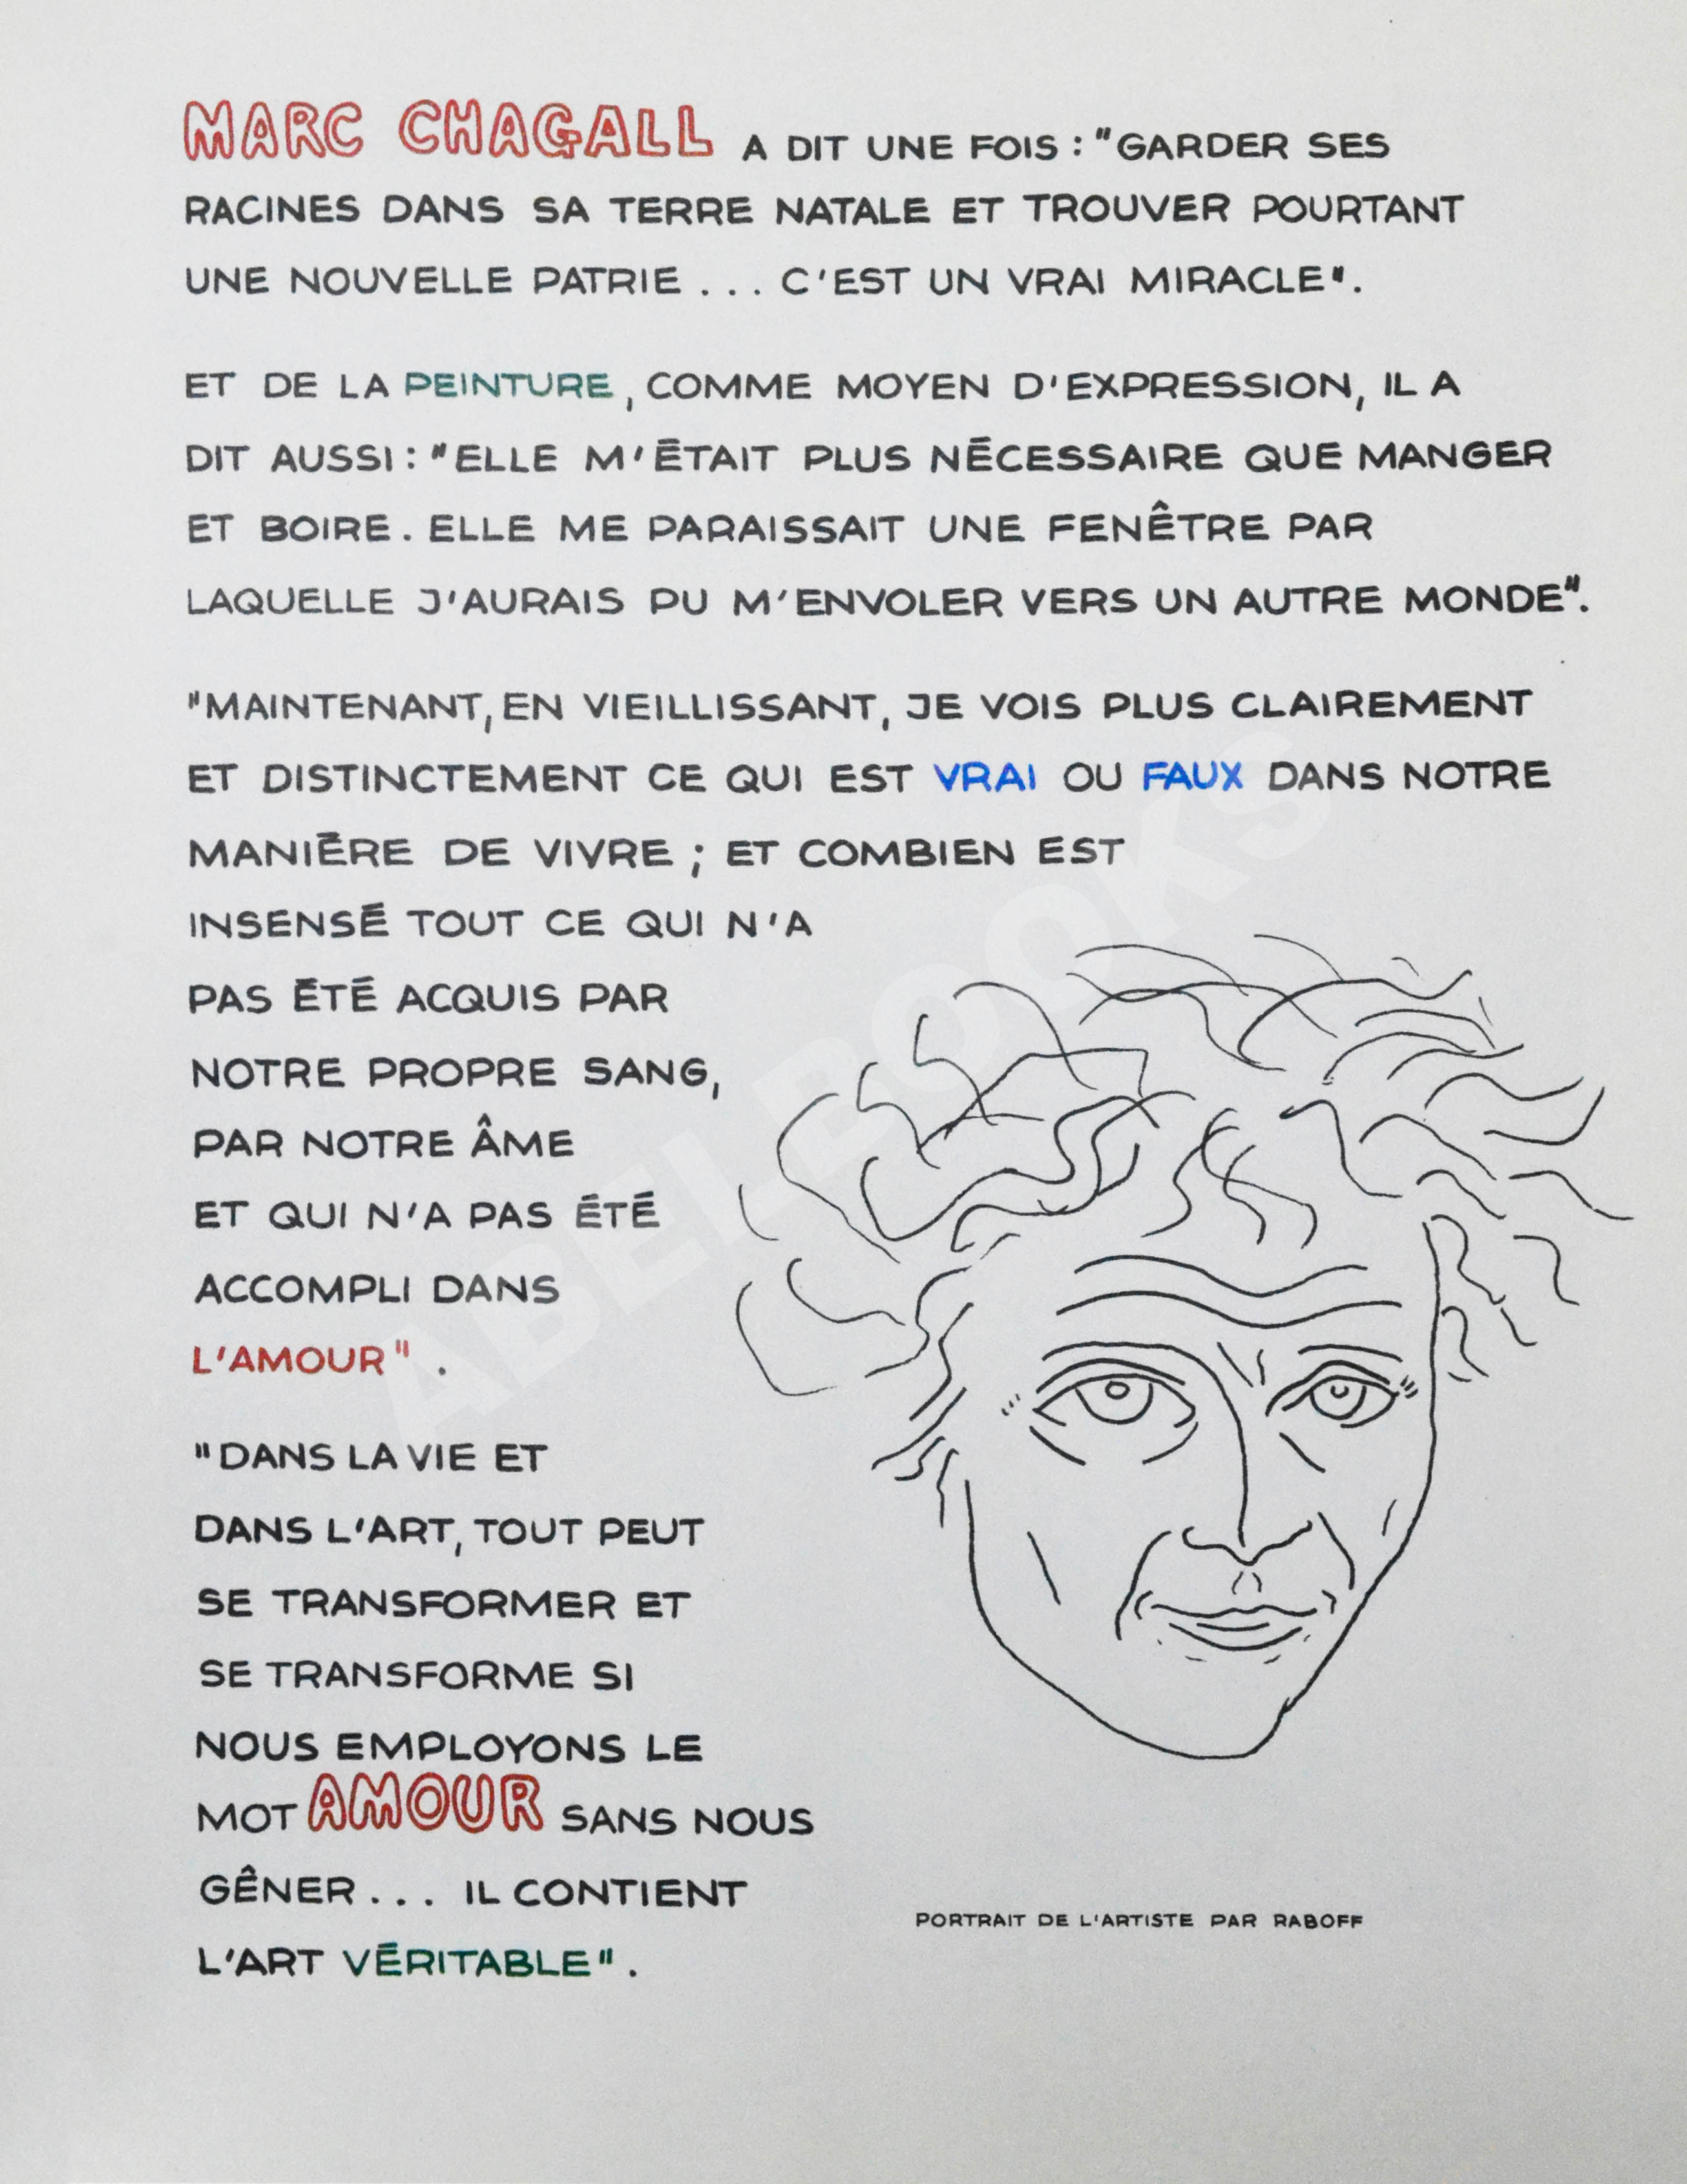 MARC CHAGALL A DIT UNE FOIS : "GARDER SES
RACINES DANS SA TERRE NATALE ET TROUVER POURTANT
UNE NOUVELLE PATRIE ... C'EST UN VRAI MIRACLE".
ET DE LA PEINTURE, COMME MOYEN D'EXPRESSION, IL A
DIT AUSSI : "ELLE M'ÉTAIT PLUS NÉCESSAIRE QUE MANGER
ET BOIRE. ELLE ME PARAISSAIT UNE FENÊTRE PAR
LAQUELLE J'AURAIS PU M'ENVOLER VERS UN AUTRE MONDE".
"MAINTENANT, EN VIEILLISSANT, JE VOIS PLUS CLAIREMENT
ET DISTINCTEMENT CE QUI EST VRAI OU FAUX DANS NOTRE
MANIÈRE DE VIVRE ; ET COMBIEN EST
INSENSÉ TOUT CE QUI N'A
PAS ÉTÉ ACQUIS PAR
NOTRE PROPRE SANG,
PAR NOTRE ÂME
ET QUI N'A PAS ÉTÉ
ACCOMPLI DANS
L'AMOUR" .
"DANS LA VIE ET
DANS L'ART, TOUT PEUT
SE TRANSFORMER ET
SE TRANSFORME SI
NOUS EMPLOYONS LE
MOT AMOUR SANS NOUS
GÊNER ... IL CONTIENT
L'ART VÉRITABLE" .
PORTRAIT DE L'ARTISTE PAR RABOFF
ABELBOOKS